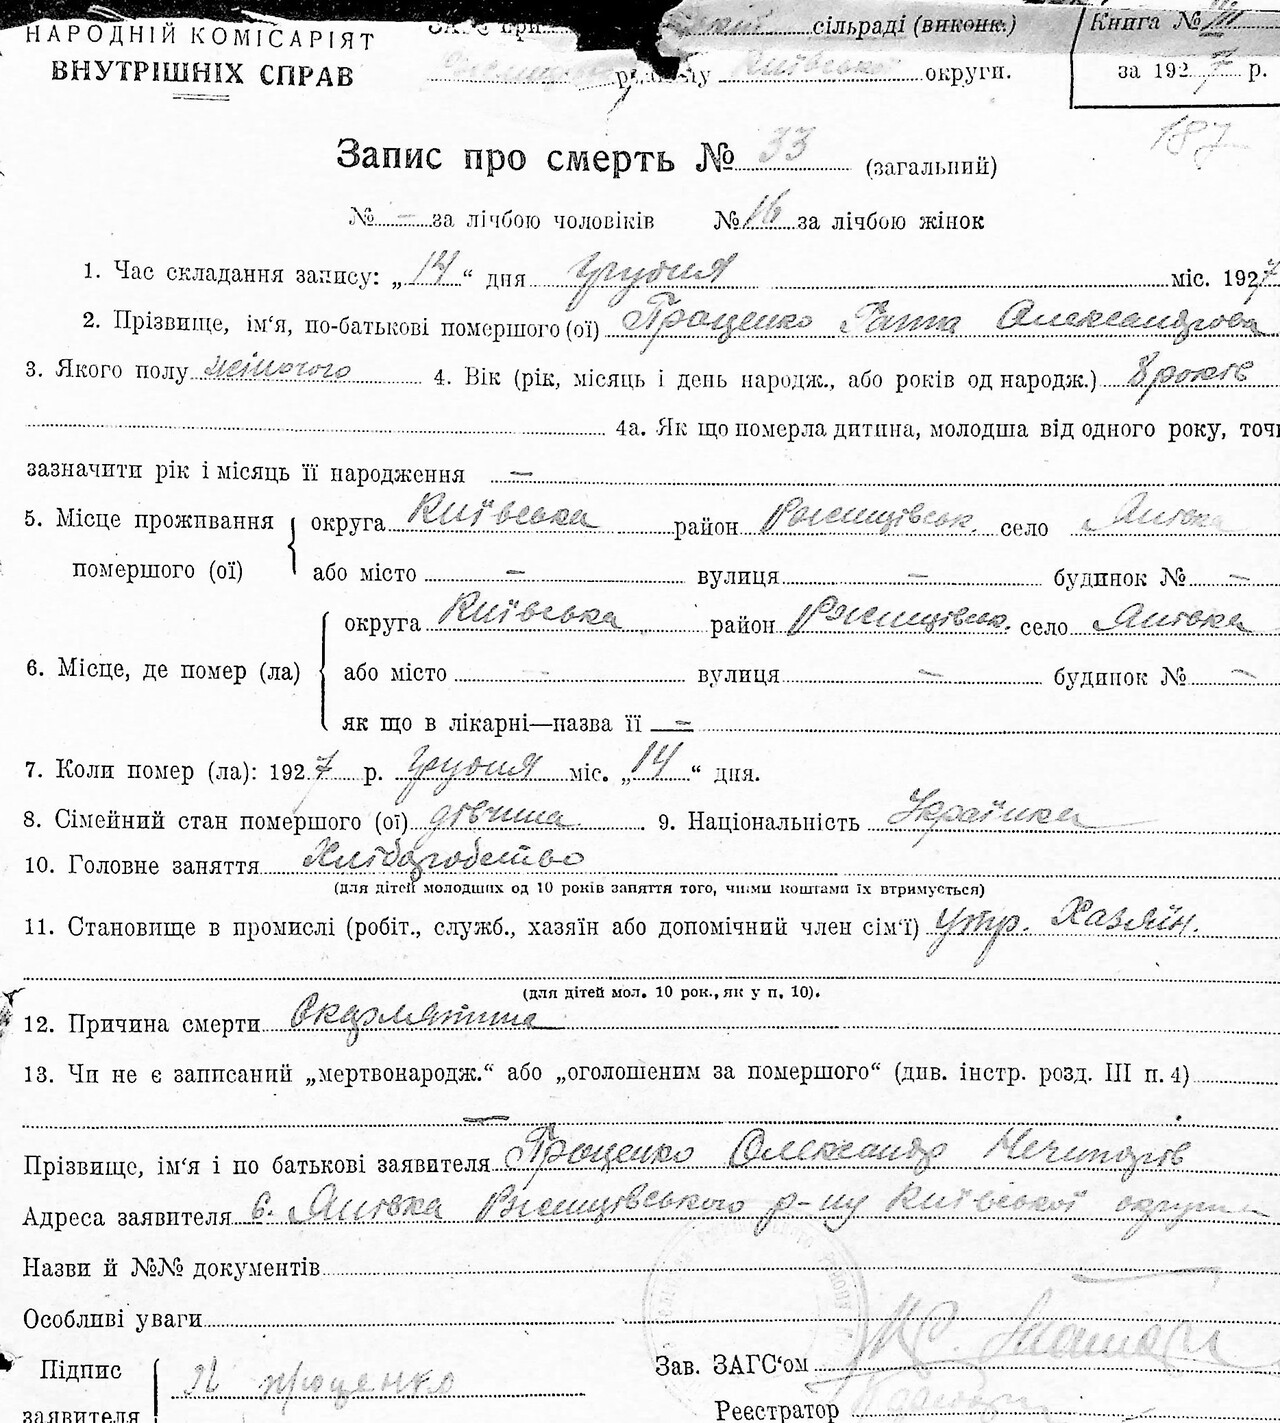 НАРОДНІЙ КОМІСАРІЯТ
ВНУТРІШНІХ СПРАВ
при сільраді (виконк.)
району Київської округи.
Книга № III
за 1927 р.
187
Запис про смерть № 33 (загальний)
№ – за лічбою чоловіків № 16 за лічбою жінок
1. Час складання запису: „14“ дня Грудня міс. 1927
2. Прізвище, ім‘я, по-батькові помершого (ої) Проценко Ганна Олександрова
3. Якого полу жіночого 4. Вік (рік, місяць і день народж., або років од народж.) 8 років
4а. Як що померла дитина, молодша від одного року, точн
зазначити рік і місяць її народження –
5. Місце проживання помершого (ої) округа Київська район Ржищівськ. село Янівка
або місто – вулиця – будинок № –
6. Місце, де помер (ла) округа Київська район Ржищівськ. село Янівка
або місто – вулиця – будинок № –
як що в лікарні—назва її –
7. Коли помер (ла): 1927 р. Грудня міс. „14“ дня.
8. Сімейний стан помершого (ої) дівчина 9. Національність Українка
10. Головне заняття Хліборобство
(для дітей молодших од 10 років заняття того, чиїми коштами їх втримується)
11. Становище в промислі (робіт., служб., хазяїн або допомічний член сім‘ї) утр. Хазяїн.
(для дітей мол. 10 рок., як у п. 10).
12. Причина смерти Скарлятина
13. Чи не є записаний „мертвонародж.“ або „оголошеним за помершого“ (див. інстр. розд. III п. 4)
–
Прізвище, ім‘я і по батькові заявителя Проценко Олександр Нечипорів
Адреса заявителя с. Янівка Ржищівського р-ну Київської округи
Назви й №№ документів –
Особливі уваги
Підпис заявителя Проценко
Зав. ЗАГС‘ом
Реєстратор